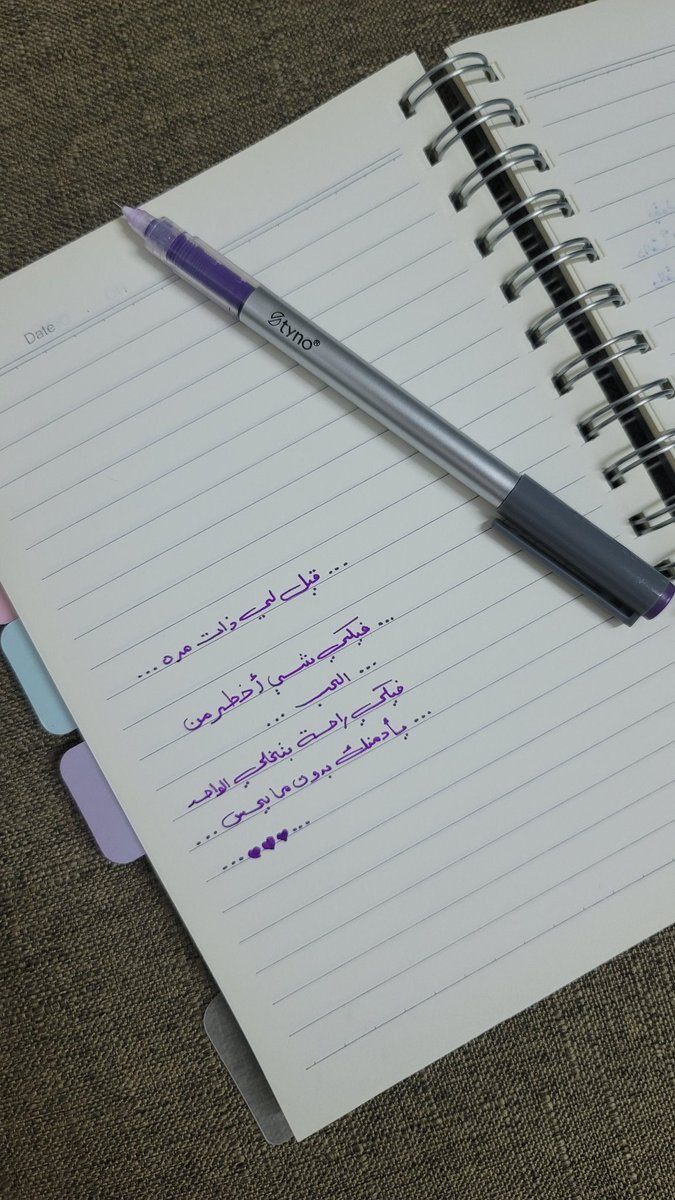 Date
Styno®
... قيل لي ذات مره ...
... فيكي شي أخطر من
... الحب ...
فيكي راحة بتخلي الواحد
... يأدمنك بدون ما يحس ...
... 💜💜💜 ...